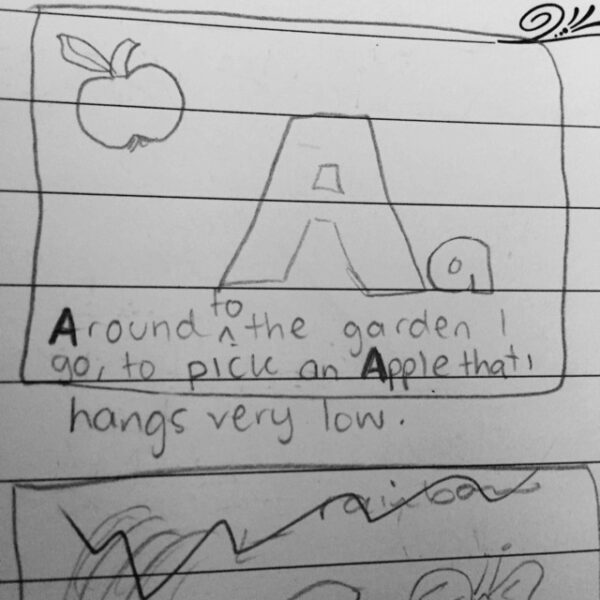 Aa
Around to the garden I
go, to pick an Apple that,
hangs very low.
rainbow